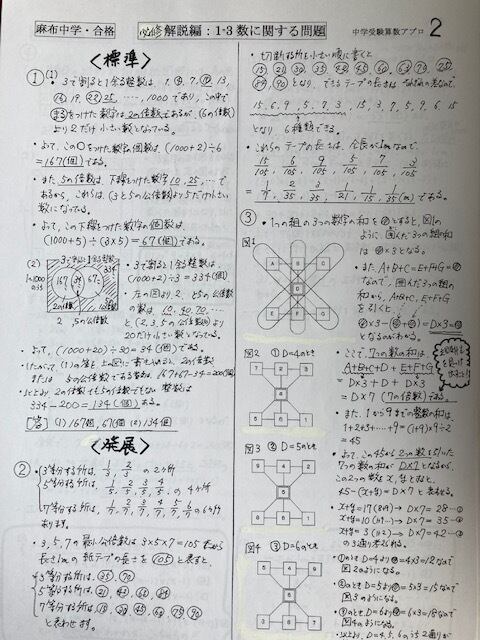 麻布中学・合格
必修 解説編：1-3 数に関する問題
中学受験算数アプロ 2
＜標準＞
① (1)
・3で割ると1余る整数は、1, 4, 7, 10, 13,
16, 19, 22, 25, ‥‥, 1000であり、この中で
○をつけた数字は2の倍数であるが、(6の倍数)
より2だけ小さい数となっている。
・よって、この○をつけた数字の個数は、(1000+2)÷6
=167(個)である。
・また、5の倍数は、下線をつけた数字10, 25, ‥で
あるから、これらは、(3と5の公倍数)より5だけ小さい
数になっている。
・よって、この下線をつけた数字の個数は、
(1000+5)÷(3×5)=67(個)である。
(2)
1〜1000
3で割ると1余る整数
334
167
67
2の倍数
5の倍数
2, 5の公倍数
・3で割ると1余る整数は、
(1000+2)÷3=334(個)
・左の図より2, 5の公倍数
の数は、10, 40, 70, ‥‥
と(2, 3, 5の公倍数)より
20だけ小さい数となる。
・よって、(1000+20)÷30=34(個)である。
または 5の公倍数である整数は、167+67-34=200(個)
・以上より、2の倍数でも5の倍数でもない整数は
334-200=134(個)ある。
[答] (1) 167個, 67個 (2) 134個
＜発展＞
②
・3等分する所は、1/3, 2/3 の2ヶ所
5等分する所は、1/5, 2/5, 3/5, 4/5, の4ヶ所
7等分する所は、1/7, 2/7, 3/7, 4/7, 5/7, 6/7 の6ヶ所
あります。
・3, 5, 7の最小公倍数は3×5×7=105だから
長さ1mの紙テープの長さを105と表すと、
3等分する所は、35, 70
5等分する所は、21, 42, 63, 84
7等分する所は、15, 30, 45, 60, 75, 90
と表わせます。
・切断する所を小さい順に書くと
15, 21, 30, 35, 42, 45, 60, 63, 70, 75,
84, 90となり、できるテープの長さは
15, 6, 9, 5, 7, 3, 15, 3, 7, 5, 9, 6, 15
となり 6種類できる。
・これらのテープの長さは、全長が1mなので、
15/105, 6/105, 9/105, 5/105, 7/105, 3/105
=1/7, 2/35, 3/35, 1/21, 1/15, 1/35 (m)である。
③
・1つの組の3つの数字の和を○とすると、図1の
ように、囲んだ3つの組の和
は○×3となる。
・また、A+B+C=E+F+G=○
なので、囲んだ3つの組の
和から、A+B+C, E+F+G
を引くと、
○×3-(○+○)=D×3=○
となるのがわかる。
図1
A B C
D
E F G
・ここで、7つの数の和は、
A+B+C+D+E+F+G
=D×3+D+D×3
=D×7 (7の倍数)である。
・また、1から9までの整数の和は、
1+2+3+‥‥+9=(1+9)×9÷2
=45
・よって、この45から2つの数を引いた
7つの数の和がD×7となるから、
この2つの数x, yとすると、
45-(x+y)=D×7 と表わせる。
x+y=17(8と9)→D×7=28‥①
x+y=10(1と9‥)→D×7=35‥②
x+y=3 (1と2)→D×7=42‥③
の3通り考えられる。
・①のときD=4より○=4×3=12なので
図2のようになる。
・②のときD=5より○=5×3=15なので
図3のようになる。
・③のときD=6より○=6×3=18なので
図4のようになる。
図2 ① D=4のとき
図3 ② D=5のとき
図4 ③ D=6のとき